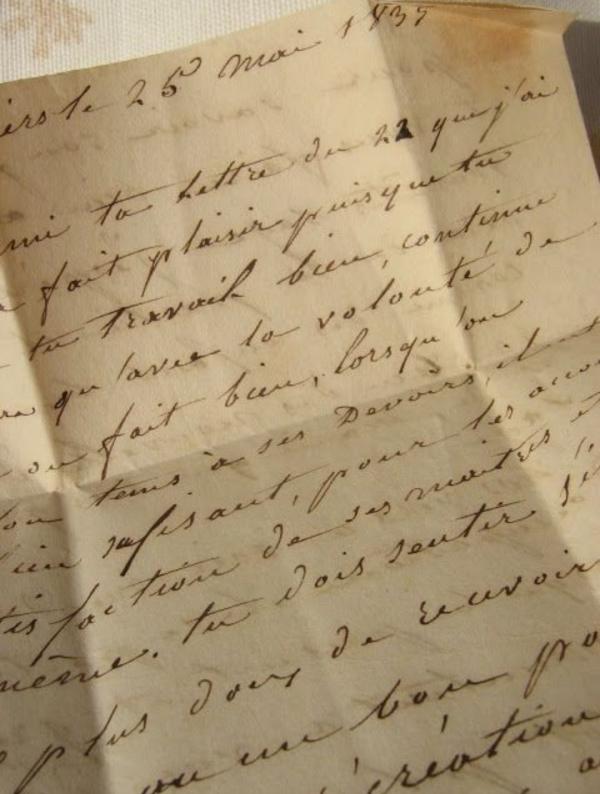 iers le 25 mai 1837
mi ta lettre du 22 que j'ai
a fait plaisir puisque tu
tu travail bien, continue
qu'avec la volonté de
on fait bien, lorsqu'on
tems à ses Devoirs, il
sufisant, pour les acco
tisfaction de ses maitres
même. tu dois sentir
plus doux de recevoir
ou un bon po
récréation